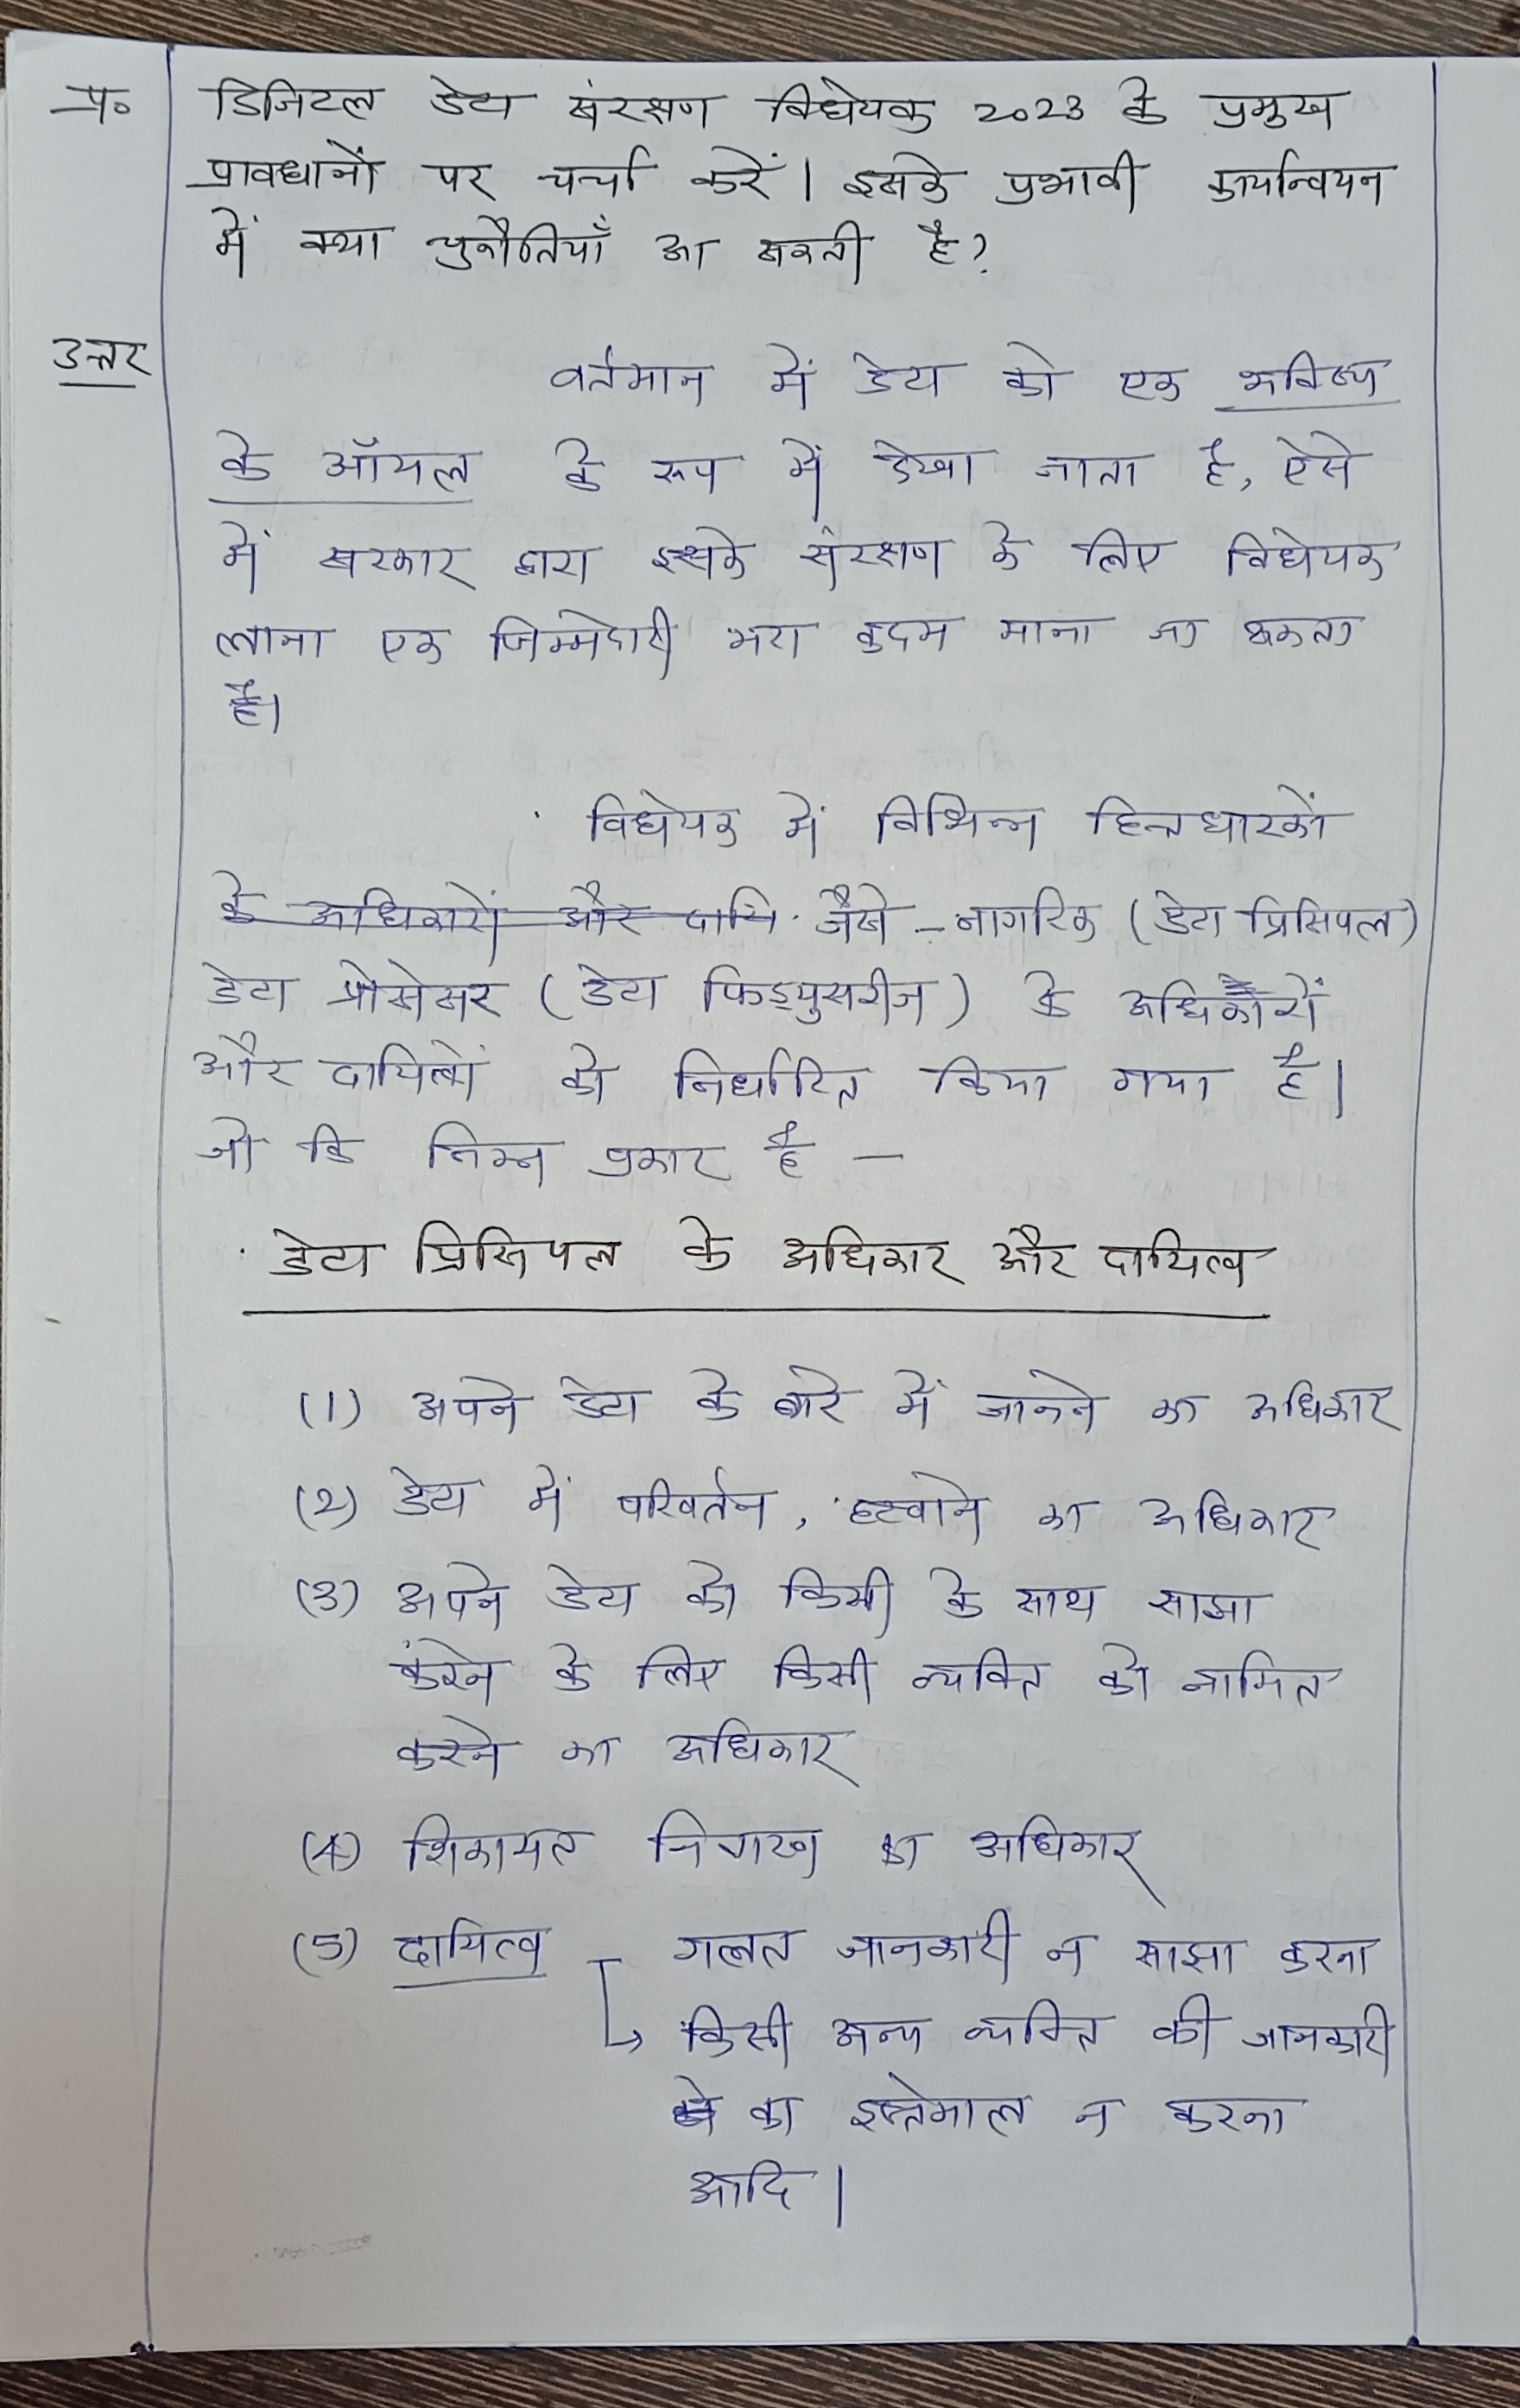 प्र० डिजिटल डेटा संरक्षण विधेयक 2023 के प्रमुख
प्रावधानों पर चर्चा करें। इसके प्रभावी कार्यान्वयन
में क्या चुनौतियाँ आ सकती है?
उत्तर वर्तमान में डेटा को एक भविष्य
के ऑयल के रूप में देखा जाता है, ऐसे
में सरकार द्वारा इसके संरक्षण के लिए विधेयक
लाना एक जिम्मेदारी भरा कदम माना जा सकता
है।
विधेयक में विभिन्न हितधारकों
के अधिकारों और दायि जैसे - नागरिक (डेटा प्रिंसिपल)
डेटा प्रोसेसर (डेटा फिड्युसरीज) के अधिकारों
और दायित्वों को निर्धारित किया गया है।
जो कि निम्न प्रकार है -
डेटा प्रिंसिपल के अधिकार और दायित्व
(1) अपने डेटा के बारे में जानने का अधिकार
(2) डेटा में परिवर्तन, हटवाने का अधिकार
(3) अपने डेटा को किसी के साथ साझा
करने के लिए किसी व्यक्ति को नामित
करने का अधिकार
(4) शिकायत निवारण का अधिकार
(5) दायित्व गलत जानकारी न साझा करना
किसी अन्य व्यक्ति की जानकारी
का इस्तेमाल न करना
आदि।